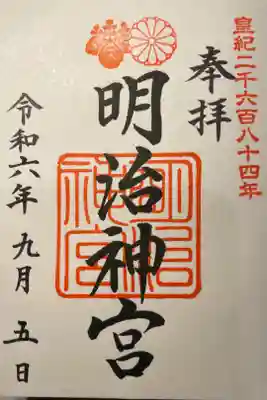 皇紀二千六百八十四年
奉拝
明治神宮
明治神宮
令和六年 九月 五日